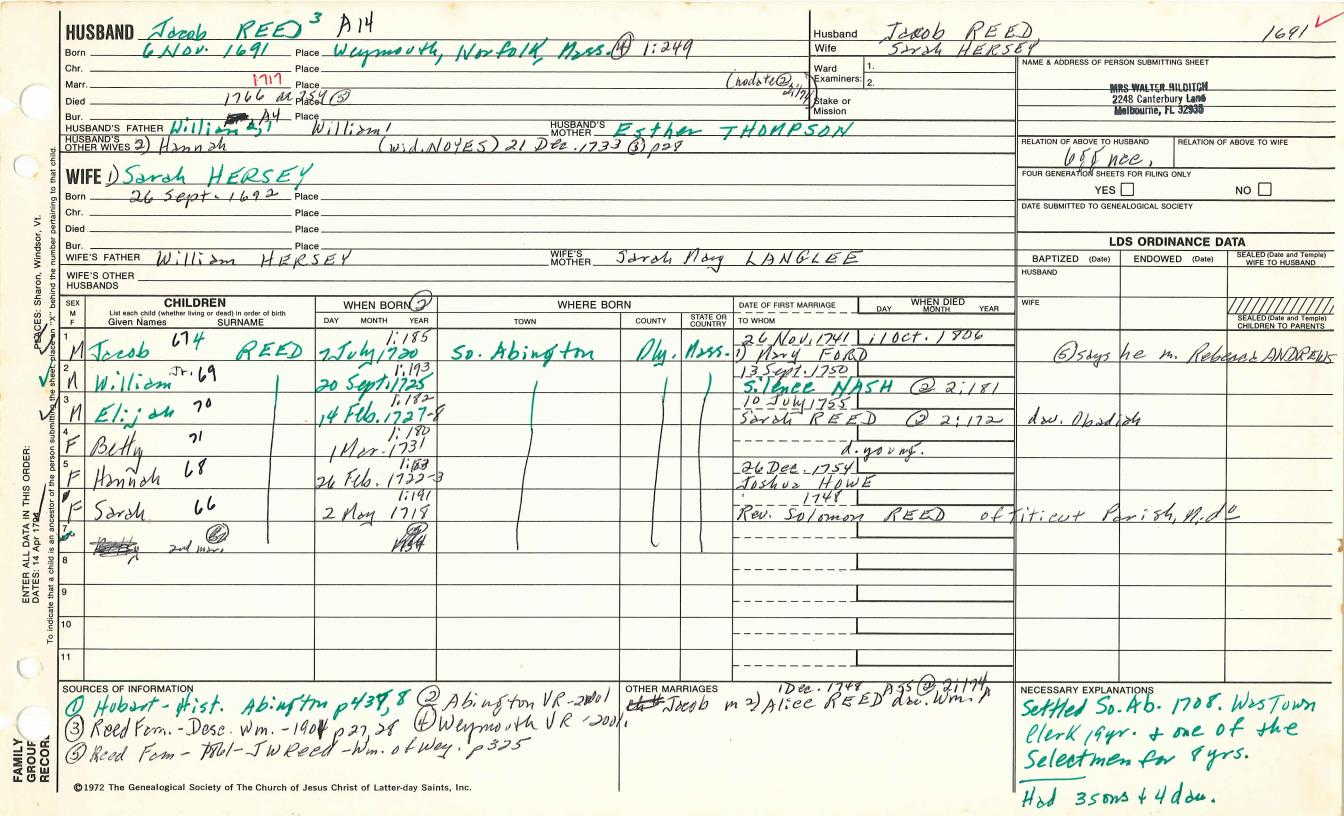 HUSBAND Jacob REED 3 A14
Born 6 Nov. 1691 Place Weymouth, Norfolk, Mass. (4) 1:249
Chr. Place
Marr. 1717 Place (nodate (2)
Died 1766 or 1754 (5) Place
Bur. A4 Place
HUSBAND'S FATHER William 2,1 William1 HUSBAND'S MOTHER Esther THOMPSON
HUSBAND'S OTHER WIVES 2) Hannah (wid. NOYES) 21 Dec. 1733 (3) p28
WIFE 1) Sarah HERSEY
Born 26 Sept. 1692 Place
Chr. Place
Died Place
Bur. Place
WIFE'S FATHER William HERSEY WIFE'S MOTHER Sarah Mary LANGLEE
WIFE'S OTHER HUSBANDS
Husband Jacob REED, 1691
Wife Sarah HERSEY
Ward Examiners: 1.
2.
Stake or Mission
NAME & ADDRESS OF PERSON SUBMITTING SHEET
MRS WALTER HILDITCH
2248 Canterbury Lane
Melbourne, FL 32935
RELATION OF ABOVE TO HUSBAND RELATION OF ABOVE TO WIFE
FOUR GENERATION SHEETS FOR FILING ONLY
YES NO
DATE SUBMITTED TO GENEALOGICAL SOCIETY
LDS ORDINANCE DATA
BAPTIZED (Date) ENDOWED (Date) SEALED (Date and Temple) WIFE TO HUSBAND
HUSBAND
WIFE
SEALED (Date and Temple) CHILDREN TO PARENTS
SEX M F
CHILDREN
List each child (whether living or dead) in order of birth
Given Names SURNAME
WHEN BORN (2)
DAY MONTH YEAR
WHERE BORN
TOWN COUNTY STATE OR COUNTRY
DATE OF FIRST MARRIAGE
TO WHOM
WHEN DIED
DAY MONTH YEAR
1 M Jacob 674 REED 1:185 7 July 1720 So. Abington Ply. Mass. 26 Nov. 1741 11 Oct. 1806
1) Mary FORD (5) says he m. Rebecca ANDREWS
2 M William Jr. 69 1:193 20 Sept. 1725 13 Sept. 1750
Silence NASH (2) 2:181
3 M Elijah 70 1:182 14 Feb. 1727-8 10 July 1755
Sarah REED (2) 2:172 dau. Obadiah
4 F Betty 71 1:180 1 Mar. 1731 d. young.
5 F Hannah 68 26 Feb. 1722-3 26 Dec. 1754
Joshua HOWE
F Sarah 66 1:191 2 May 1718 1748
Rev. Solomon REED of Titicut Parish, M.do
7 2nd marr.
8
9
10
11
SOURCES OF INFORMATION
(1) Hobart-Hist. Abington p437,8 (2) Abington VR-2001
(3) Reed Fam.-Desc. Wm.-1901 p27,28 (4) Weymouth VR-2001.
(5) Reed Fam-1861-JW Reed-Wm. of Wey. p325
©1972 The Genealogical Society of The Church of Jesus Christ of Latter-day Saints, Inc.
OTHER MARRIAGES
1 Dec. 1748 (2) 2:174
Jacob m 2) Alice REED dau. Wm.
NECESSARY EXPLANATIONS
Settled So. Ab. 1708. Was Town
Clerk 19yr. & one of the
Selectmen for 8 yrs.
Had 3 sons & 4 dau.
FAMILY GROUP RECORD
ENTER ALL DATA IN THIS ORDER:
DATES: 14 Apr 1794
PLACES: Sharon, Windsor, Vt.
To indicate that a child is an ancestor of the person submitting the sheet, place an "X" behind the number pertaining to that child.